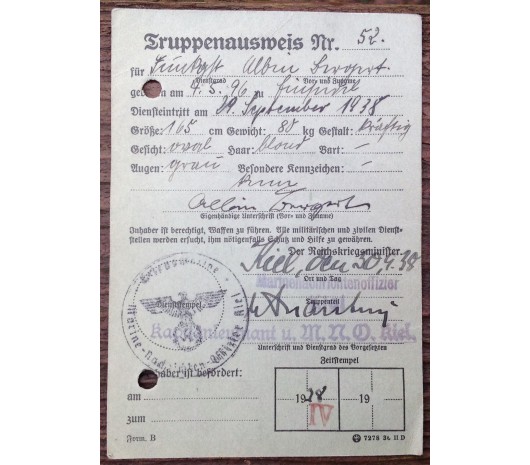 Truppenausweis Nr. 52.
für Albin
Dienstgrad Vor- und Zuname
geboren am 4.5.96 zu
Diensteintritt am 29. September 1938
Größe: 165 cm Gewicht: 88 kg Gestalt: kräftig
Gesicht: oval Haar: blond Bart: –
Augen: grau Besondere Kennzeichen: –
Albin
Eigenhändige Unterschrift (Vor- und Zuname)
Inhaber ist berechtigt, Waffen zu führen. Alle militärischen und zivilen Dienst-
stellen werden ersucht, ihm nötigenfalls Schutz und Hilfe zu gewähren.
Der Reichskriegsminister
Kiel, den 30.4.38
Ort und Tag
Marinenachrichtenoffizier
Truppenteil
Dienststempel
Kriegsmarine
Marine-Nachrichten-Offizier Kiel
Kapitänleutnant u. M.N.O. Kiel.
Unterschrift und Dienstgrad des Vorgesetzten
Inhaber ist befördert:
am
zum
Zeitstempel
1938 19
IV
Form. B
7278 38 II D